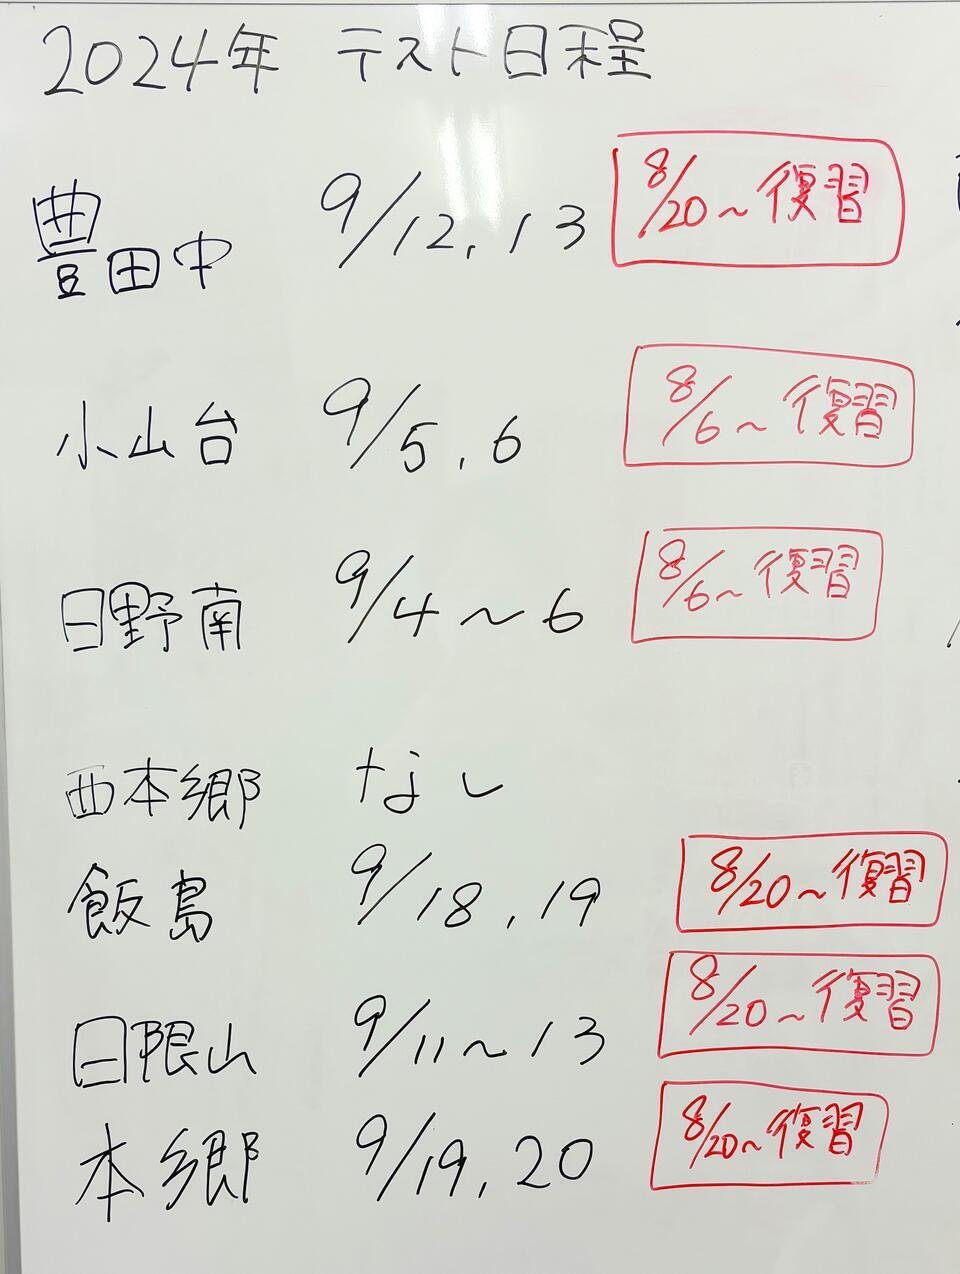 2024年 テスト日程
豊田中 9/12, 13 8/20~復習
小山台 9/5, 6 8/6~復習
日野南 9/4~6 8/6~復習
西本郷 なし
飯島 9/18, 19 8/20~復習
日限山 9/11~13 8/20~復習
本郷 9/19, 20 8/20~復習